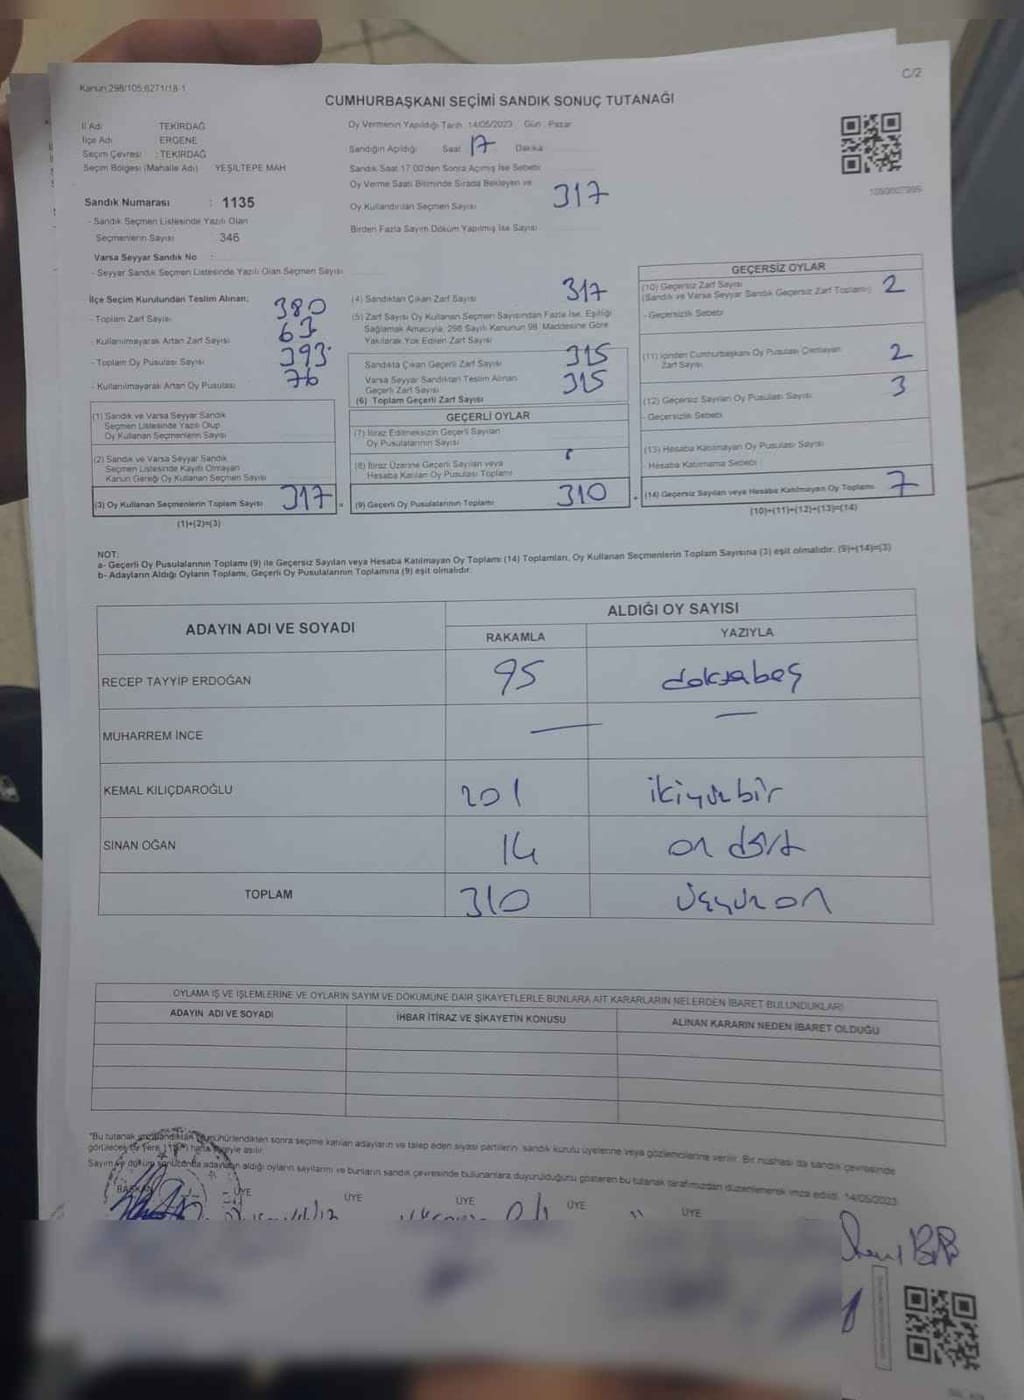 Kanun:298/105;6271/18-1
C/2
CUMHURBAŞKANI SEÇİMİ SANDIK SONUÇ TUTANAĞI
İl Adı TEKİRDAĞ
İlçe Adı ERGENE
Seçim Çevresi : TEKİRDAĞ
Seçim Bölgesi (Mahalle Adı) YEŞİLTEPE MAH
Sandık Numarası : 1135
- Sandık Seçmen Listesinde Yazılı Olan
Seçmenlerin Sayısı : 346
Varsa Seyyar Sandık No :
- Seyyar Sandık Seçmen Listesinde Yazılı Olan Seçmen Sayısı
Oy Vermenin Yapıldığı Tarih 14/05/2023 Gün : Pazar
Sandığın Açıldığı Saat 17 Dakika
Sandık Saat 17:00'den Sonra Açılmış İse Sebebi
Oy Verme Saati Bitiminde Sırada Bekleyen ve
Oy Kullandırılan Seçmen Sayısı 317
Birden Fazla Sayım Döküm Yapılmış İse Sayısı
İlçe Seçim Kurulundan Teslim Alınan;
- Toplam Zarf Sayısı 380
- Kullanılmayarak Artan Zarf Sayısı 63
- Toplam Oy Pusulası Sayısı 393
- Kullanılmayarak Artan Oy Pusulası 76
(1) Sandık ve Varsa Seyyar Sandık
Seçmen Listesinde Yazılı Olup
Oy Kullanan Seçmenlerin Sayısı
(2) Sandık ve Varsa Seyyar Sandık
Seçmen Listesinde Kayıtlı Olmayan
Kanun Gereği Oy Kullanan Seçmen Sayısı
(3) Oy Kullanan Seçmenlerin Toplam Sayısı 317 =
(1)+(2)=(3)
(4) Sandıktan Çıkan Zarf Sayısı 317
(5) Zarf Sayısı Oy Kullanan Seçmen Sayısından Fazla İse, Eşitliği
Sağlamak Amacıyla, 298 Sayılı Kanunun 98. Maddesine Göre
Yakılarak Yok Edilen Zarf Sayısı
Sandıkta Çıkan Geçerli Zarf Sayısı 315
Varsa Seyyar Sandıktan Teslim Alınan
Geçerli Zarf Sayısı
(6) Toplam Geçerli Zarf Sayısı 315
GEÇERLİ OYLAR
(7) İtiraz Edilmeksizin Geçerli Sayılan
Oy Pusulalarının Sayısı
(8) İtiraz Üzerine Geçerli Sayılan veya
Hesaba Katılan Oy Pusulası Toplamı
(9) Geçerli Oy Pusulalarının Toplamı 310 +
GEÇERSİZ OYLAR
(10) Geçersiz Zarf Sayısı
(Sandık ve Varsa Seyyar Sandık Geçersiz Zarf Toplamı) 2
- Geçersizlik Sebebi
(11) İçinden Cumhurbaşkanı Oy Pusulası Çıkmayan
Zarf Sayısı 2
(12) Geçersiz Sayılan Oy Pusulası Sayısı 3
- Geçersizlik Sebebi
(13) Hesaba Katılmayan Oy Pusulası Sayısı
- Hesaba Katılmama Sebebi
(14) Geçersiz Sayılan veya Hesaba Katılmayan Oy Toplamı 7
(10)+(11)+(12)+(13)=(14)
NOT:
a- Geçerli Oy Pusulalarının Toplamı (9) ile Geçersiz Sayılan veya Hesaba Katılmayan Oy Toplamı (14) Toplamları, Oy Kullanan Seçmenlerin Toplam Sayısına (3) eşit olmalıdır. (9)+(14)=(3)
b- Adayların Aldığı Oyların Toplamı, Geçerli Oy Pusulalarının Toplamına (9) eşit olmalıdır.
ADAYIN ADI VE SOYADI ALDIĞI OY SAYISI
RAKAMLA YAZIYLA
RECEP TAYYİP ERDOĞAN 95 doksabeş
MUHARREM İNCE — —
KEMAL KILIÇDAROĞLU 201 ikiyüzbir
SİNAN OĞAN 14 on dört
TOPLAM 310 üçyüz on
OYLAMA İŞ VE İŞLEMLERİNE VE OYLARIN SAYIM VE DÖKÜMÜNE DAİR ŞİKAYETLERLE BUNLARA AİT KARARLARIN NELERDEN İBARET BULUNDUKLARI
ADAYIN ADI VE SOYADI İHBAR İTİRAZ VE ŞİKAYETİN KONUSU ALINAN KARARIN NEDEN İBARET OLDUĞU
"Bu tutanak imzalandıktan mühürlendikten sonra seçime katılan adayların ve talep eden siyasi partilerin sandık kurulu üyelerine veya gözlemcilerine verilir. Bir nüshası da sandık çevresinde
görülecek bir yere hafta süreyle asılır.
Sayım ve döküm sonucunda adayların aldığı oyların sayılarını ve bunların sandık çevresinde bulunanlara duyurulduğunu gösteren bu tutanak tarafımızdan düzenlenerek imza edildi. 14/05/2023
BAŞKAN ÜYE ÜYE ÜYE ÜYE ÜYE